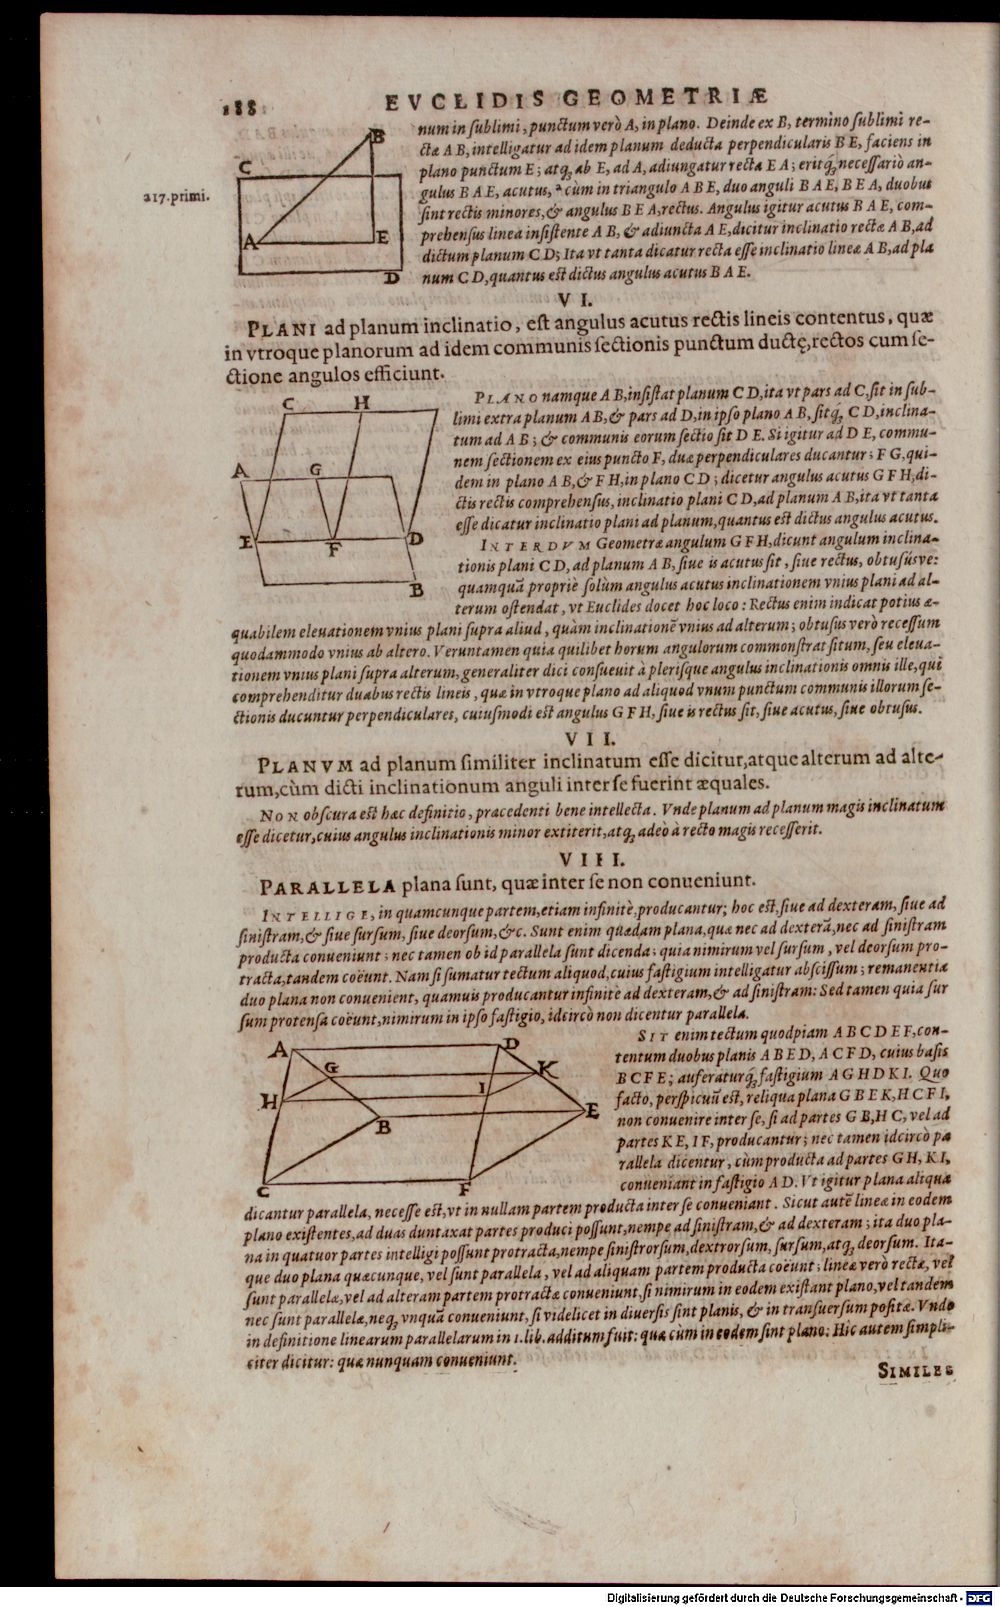 188 EVCLIDIS GEOMETRIÆ
num in sublimi, punctum verò A, in plano. Deinde ex B, termino sublimi re-
ctæ A B, intelligatur ad idem planum deducta perpendicularis B E, faciens in
plano punctum E; atq; ab E, ad A, adiungatur recta E A; eritq́; necessariò an-
a17.primi.
gulus B A E, acutus, ᵃ cùm in triangulo A B E, duo anguli B A E, B E A, duobus
sint rectis minores, & angulus B E A, rectus. Angulus igitur acutus B A E, com-
prehensus linea insistente A B, & adiuncta A E, dicitur inclinatio rectæ A B, ad
dictum planum C D; Ita vt tanta dicatur recta esse inclinatio lineæ A B, ad pla
num C D, quantus est dictus angulus acutus B A E.
B
C
A
E
D
V I.
PLANI ad planum inclinatio, est angulus acutus rectis lineis contentus, quæ
in vtroque planorum ad idem communis sectionis punctum ductę, rectos cum se-
ctione angulos efficiunt.
PLANO namque A B, insistat planum C D, ita vt pars ad C, sit in sub-
limi extra planum A B, & pars ad D, in ipso plano A B, sitq́; C D, inclina-
tum ad A B; & communis eorum sectio sit D E. Si igitur ad D E, commu-
nem sectionem ex eius puncto F, duæ perpendiculares ducantur; F G, qui-
dem in plano A B, & F H, in plano C D; dicetur angulus acutus G F H, di-
ctis rectis comprehensus, inclinatio plani C D, ad planum A B, ita vt tanta
esse dicatur inclinatio plani ad planum, quantus est dictus angulus acutus.
C
H
A
G
E
F
D
B
INTERDVM Geometræ angulum G F H, dicunt angulum inclina-
tionis plani C D, ad planum A B, siue is acutus sit, siue rectus, obtususve:
quamquā propriè solùm angulus acutus inclinationem vnius plani ad al-
terum ostendat, vt Euclides docet hoc loco: Rectus enim indicat potius æ-
quabilem eleuationem vnius plani supra aliud, quàm inclinationē vnius ad alterum; obtusus verò recessum
quodammodo vnius ab altero. Veruntamen quia quilibet horum angulorum commonstrat situm, seu eleua-
tionem vnius plani supra alterum, generaliter dici consueuit à plerisque angulus inclinationis omnis ille, qui
comprehenditur duabus rectis lineis, quæ in vtroque plano ad aliquod vnum punctum communis illorum se-
ctionis ducuntur perpendiculares, cuiusmodi est angulus G F H, siue is rectus sit, siue acutus, siue obtusus.
V I I.
PLANVM ad planum similiter inclinatum esse dicitur, atque alterum ad alte-
rum, cùm dicti inclinationum anguli inter se fuerint æquales.
NON obscura est hæc definitio, præcedenti bene intellecta. Vnde planum ad planum magis inclinatum
esse dicetur, cuius angulus inclinationis minor extiterit, atq; adeò à recto magis recesserit.
V I I I.
PARALLELA plana sunt, quæ inter se non conueniunt.
INTELLIGE, in quamcunque partem, etiam infinitè, producantur; hoc est, siue ad dexteram, siue ad
sinistram, & siue sursum, siue deorsum, &c. Sunt enim quædam plana, quæ nec ad dexterā, nec ad sinistram
producta conueniunt; nec tamen ob id parallela sunt dicenda; quia nimirum vel sursum, vel deorsum pro-
tracta, tandem coëunt. Nam si sumatur tectum aliquod, cuius fastigium intelligatur abscissum; remanentia
duo plana non conuenient, quamuis producantur infinitè ad dexteram, & ad sinistram: Sed tamen quia sur
sum protensa coëunt, nimirum in ipso fastigio, idcircò non dicentur parallela.
SIT enim tectum quodpiam A B C D E F, con-
tentum duobus planis A B E D, A C F D, cuius basis
B C F E; auferaturq́; fastigium A G H D K I. Quo
facto, perspicuū est, reliqua plana G B E K, H C F I,
non conuenire inter se, si ad partes G B, H C, vel ad
partes K E, I F, producantur; nec tamen idcircò pa
rallela dicentur, cùm producta ad partes G H, K I,
conueniant in fastigio A D. Vt igitur plana aliqua
A
D
G
K
H
I
B
E
C
F
dicantur parallela, necesse est, vt in nullam partem producta inter se conueniant. Sicut autē lineæ in eodem
plano existentes, ad duas duntaxat partes produci possunt, nempe ad sinistram, & ad dexteram; ita duo pla-
na in quatuor partes intelligi possunt protracta, nempe sinistrorsum, dextrorsum, sursum, atq; deorsum. Ita-
que duo plana quæcunque, vel sunt parallela, vel ad aliquam partem producta coëunt; lineæ verò rectæ, vel
sunt parallelæ, vel ad alteram partem protractæ conueniunt, si nimirum in eodem existant plano, vel tandem
nec sunt parallelæ, neq; vnquā conueniunt, si videlicet in diuersis sint planis, & in transuersum positæ. Vnde
in definitione linearum parallelarum in 1. lib. additum fuit: quæ cùm in eodem sint plano: Hic autem simpli-
citer dicitur: quæ nunquam conueniunt.
SIMILES
Digitalisierung gefördert durch die Deutsche Forschungsgemeinschaft - DFG